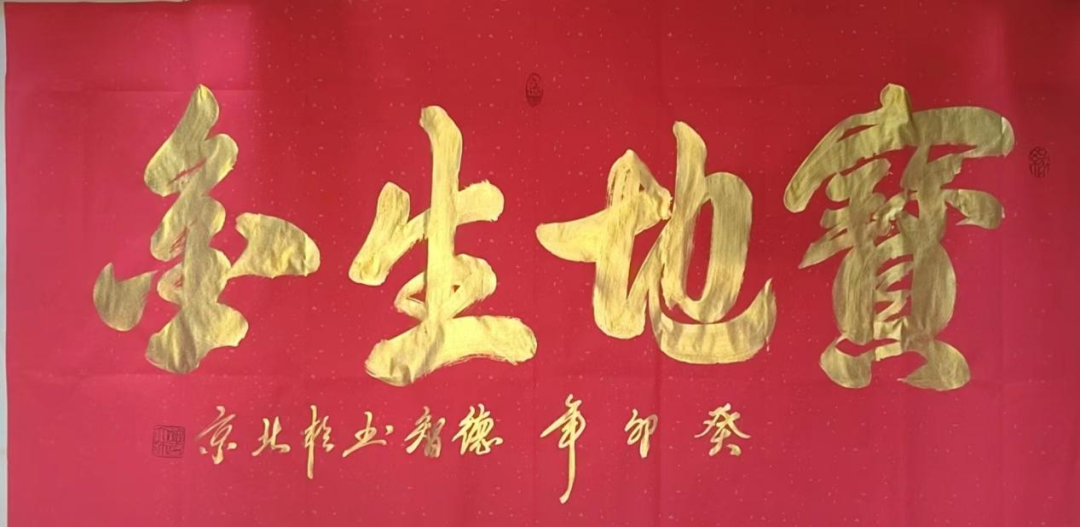 寶地生金
癸卯年德智書於北京